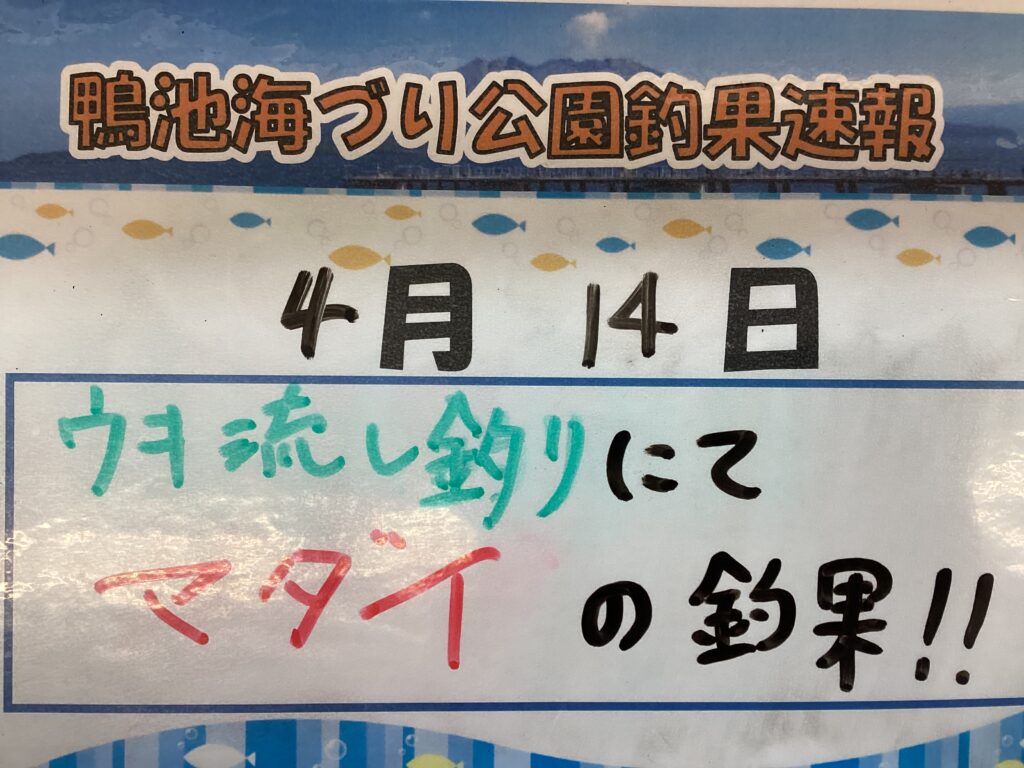 鴨池海づり公園釣果速報
4月 14日
ウキ流し釣りにて
マダイの釣果!!